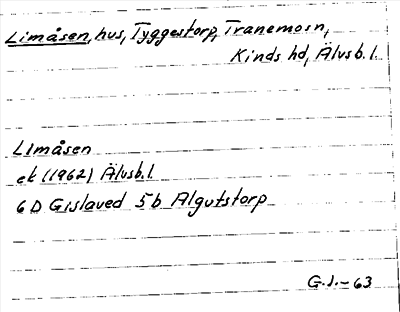 Limåsen, hus, Tyggestorp, Tranemo sn,
Kinds hd, Älvsb. l.
Limåsen
ek (1962) Älvsb. l.
6D Gislaved 5b Algutstorp
G.J.-63